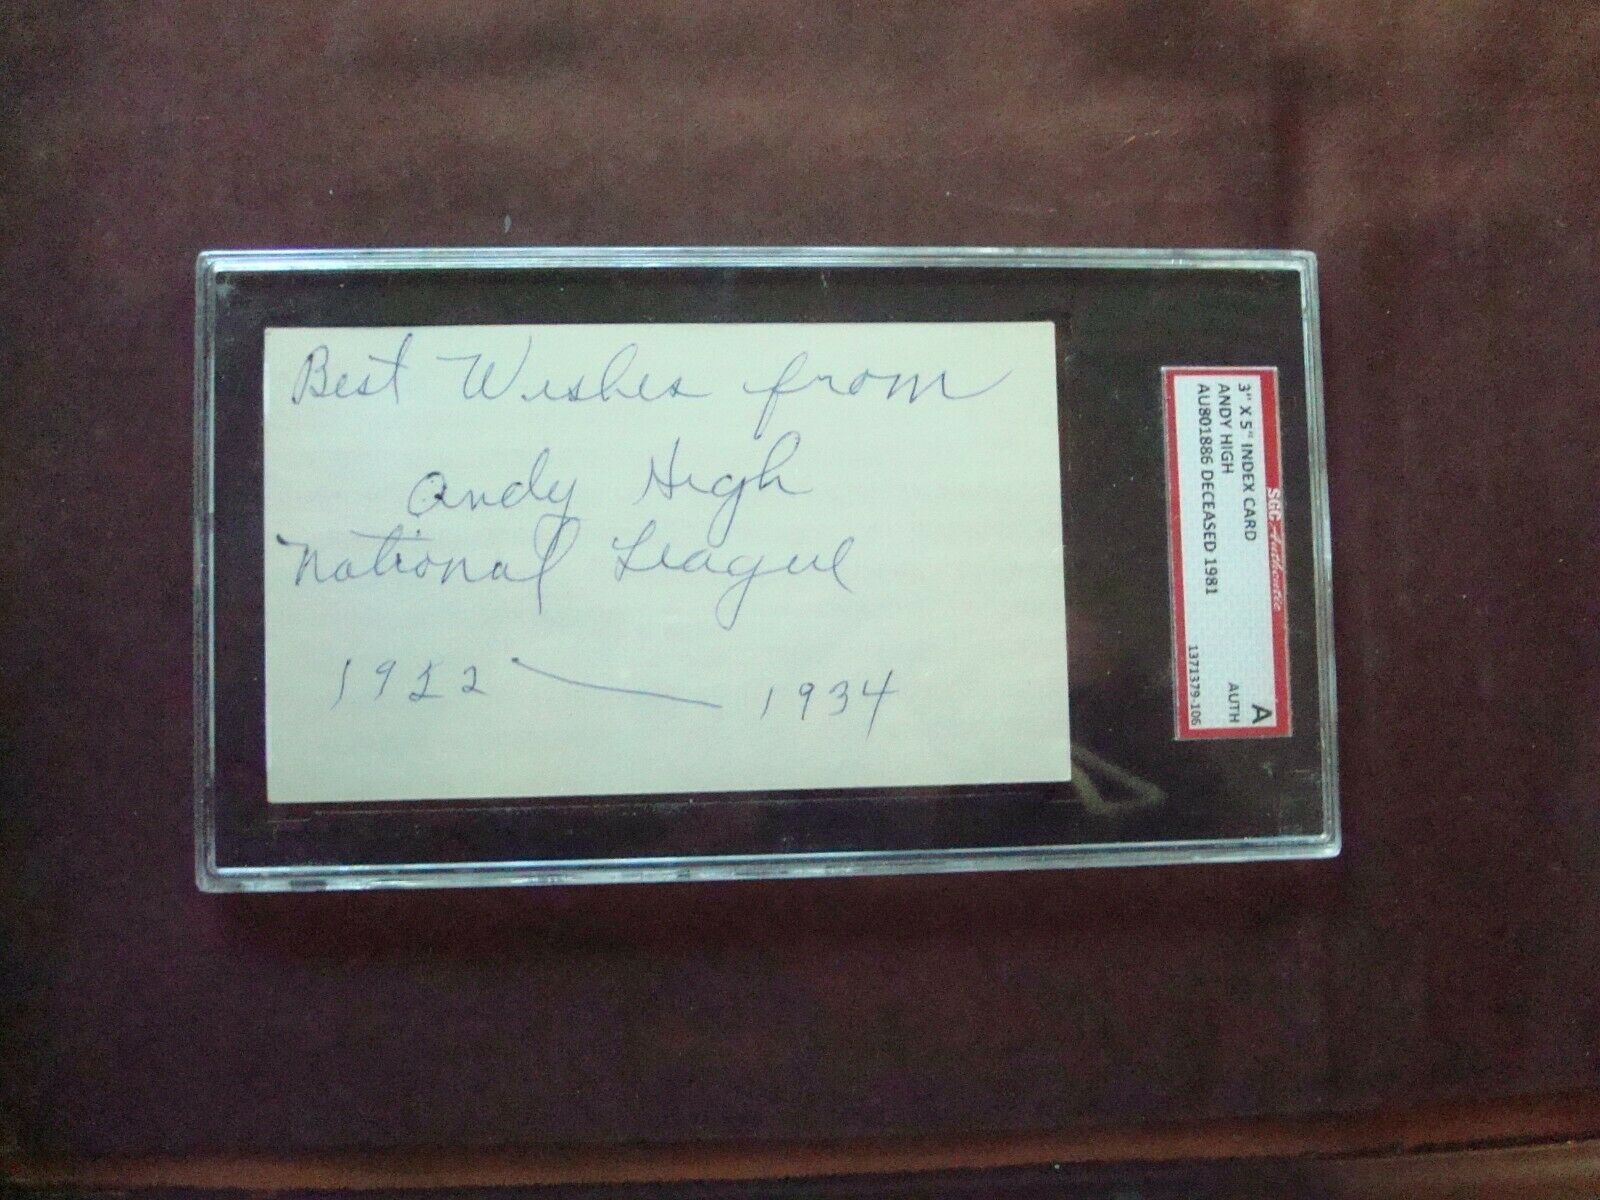 Best Wishes from
Andy High
National League
1922 — 1934
SGC Authentic
3" X 5" INDEX CARD
ANDY HIGH
AU801886 DECEASED 1981
A
AUTH
1371379-106